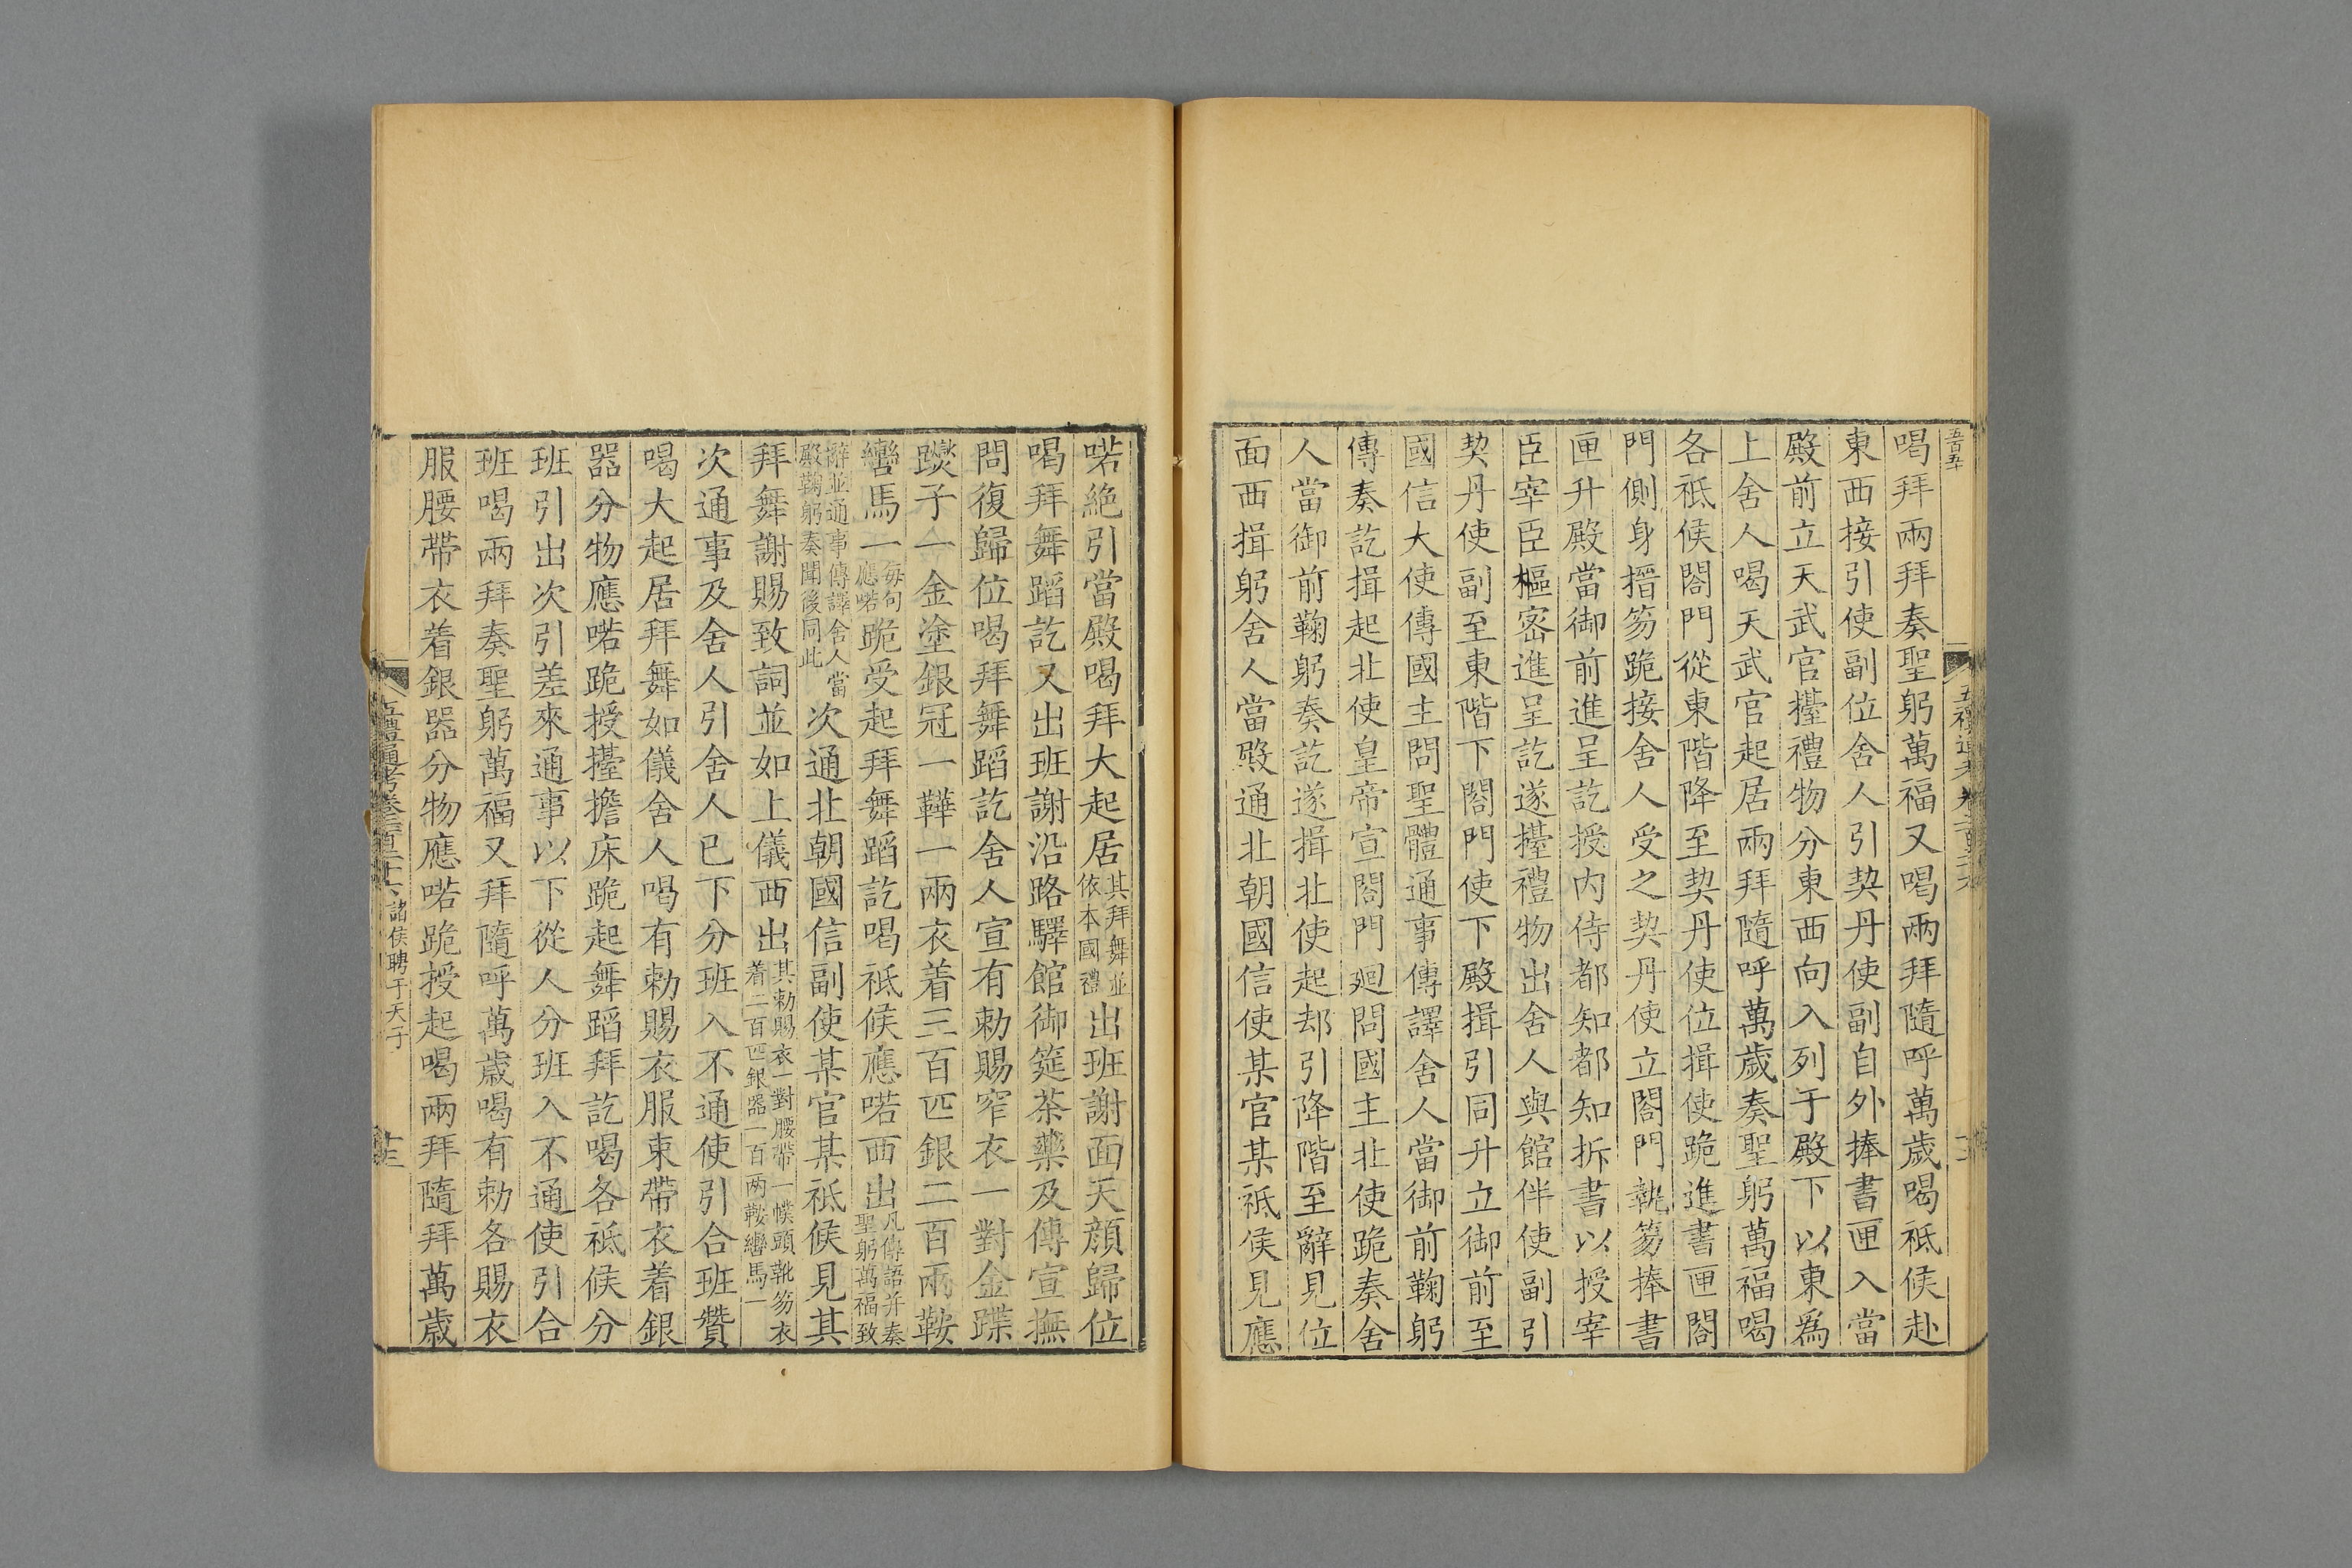 五百五十
喝拜兩拜奏聖躬萬福又喝兩拜隨呼萬歲喝祗候赴
東西接引使副位舍人引契丹使副自外捧書匣入當
殿前立天武官擡禮物分東西向入列于殿下以東爲
上舍人喝天武官起居兩拜隨呼萬歲奏聖躬萬福喝
各祗候閤門從東階降至契丹使位揖使跪進書匣閤
門側身搢笏跪接舍人受之契丹使立閤門執笏捧書
匣升殿當御前進呈訖授内侍都知都知拆書以授宰
臣宰臣樞密進呈訖遂擡禮物出舍人與館伴使副引
契丹使副至東階下閤門使下殿揖引同升立御前至
國信大使傳國主問聖體通事傳譯舍人當御前鞠躬
傳奏訖揖起北使皇帝宣閤門廻問國主北使跪奏舍
人當御前鞠躬奏訖遂揖北使起却引降階至辭見位
面西揖躬舍人當殿通北朝國信使某官某祗候見應
喏絶引當殿喝拜大起居其拜舞並依本國禮出班謝面天顔歸位
喝拜舞蹈訖又出班謝沿路驛館御筵茶藥及傳宣撫
問復歸位喝拜舞蹈訖舍人宣有勅賜窄衣一對金蹀
躞子一金塗銀冠一鞾一兩衣着三百匹銀二百兩鞍
轡馬一每句應喏跪受起拜舞蹈訖喝祗候應喏西出凡傳語并奏聖躬萬福致
辭並通事傳譯舍人當殿鞠躬奏聞後同此次通北朝國信副使某官某祗候見其
拜舞謝賜致詞並如上儀西出其勅賜衣一對腰帶一幞頭靴笏衣着二百匹銀器一百兩鞍轡馬一
次通事及舍人引舍人已下分班入不通使引合班贊
喝大起居拜舞如儀舍人喝有勅賜衣服束帶衣着銀
器分物應喏跪授擡擔床跪起舞蹈拜訖喝各祗候分
班引出次引差來通事以下從人分班入不通使引合
班喝兩拜奏聖躬萬福又拜隨呼萬歲喝有勅各賜衣
服腰帶衣着銀器分物應喏跪授起喝兩拜隨拜萬歲
五禮通考卷二百二十六 諸侯聘于天子 十三